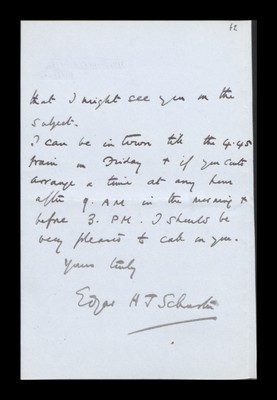 12
that I might see you on the
subject.
I can be in town till the 4.45
train on Friday & if you could
arrange a time at any hour
after 9. AM in the morning &
before 3. P.M. I should be
very pleased to call on you.
Yours truly
Edgar H J Schuster